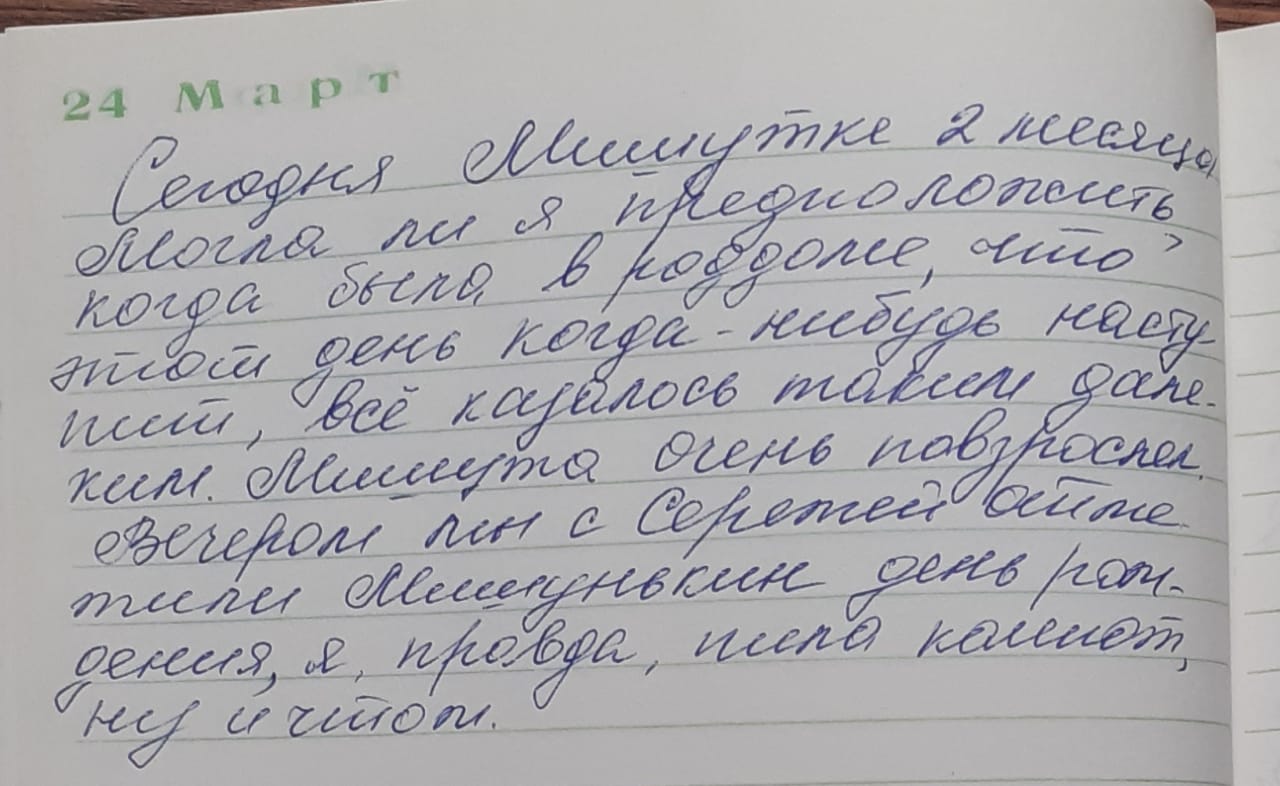 24 Март
Сегодня Мишутке 2 месяца,
Могла ли я предположить
когда была в роддоме, что
этот день когда-нибудь насту-
пит, всё казалось таким дале-
ким. Мишута очень повзрослел.
Вечером мы с Сережей отме-
тили Мишунькин день рож-
дения, я, правда, пила компот,
ну и чтож.